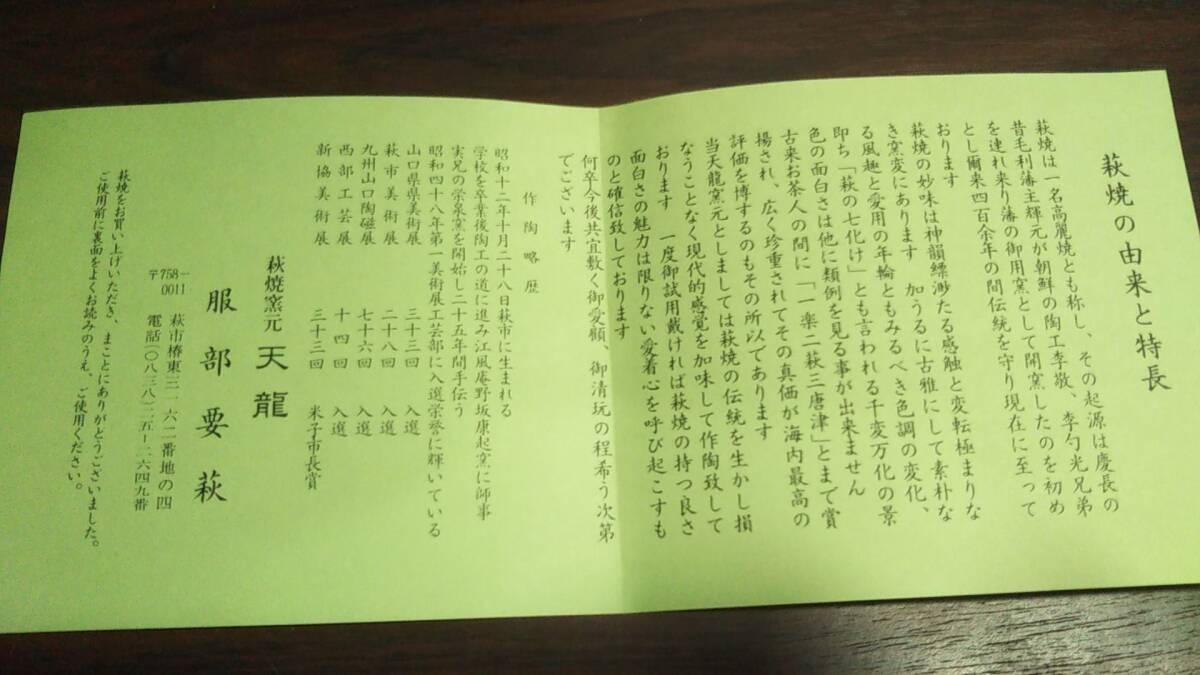 萩焼の由来と特長
萩焼は一名高麗焼とも称し、その起源は慶長の
昔毛利藩主輝元が朝鮮の陶工李敬、李勺光兄弟
を連れ来り藩の御用窯として開窯したのを初め
とし爾来四百余年の間伝統を守り現在に至って
おります
萩焼の妙味は神韻縹渺たる感触と変転極まりな
き窯変にあります　加うるに古雅にして素朴な
る風趣と愛用の年輪ともみるべき色調の変化、
即ち「萩の七化け」とも言われる千変万化の景
色の面白さは他に類例を見る事が出来ません
古来お茶人の間に「一楽二萩三唐津」とまで賞
揚され、広く珍重されてその真価が海内最高の
評価を博するのもその所以であります
当天龍窯元としましては萩焼の伝統を生かし損
なうことなく現代的感覚を加味して作陶致して
おります　一度御試用戴ければ萩焼の持つ良さ
面白さの魅力は限りない愛着心を呼び起こすも
のと確信致しております
何卒今後共宜敷く御愛顧、御清玩の程希う次第
でございます
作陶略歴
昭和十二年十月二十八日萩市に生まれる
学校を卒業後陶工の道に進み江風庵野坂康起窯に師事
実兄の栄泉窯を開始し二十五年間手伝う
昭和四十八年第一美術展工芸部に入選栄誉に輝いている
山口県県美術展　三十三回　入選
萩市美術展　二十八回　入選
九州山口陶磁展　七十六回　入選
西部工芸展　十四回　入選
新協美術展　三十三回　米子市長賞
萩焼窯元　天龍
服部要萩
〒758-0011　萩市椿東三一六二番地の四
電話(〇八三八)二五-二六四九番
萩焼をお買い上げいただき、まことにありがとうございました。
ご使用前に裏面をよくお読みのうえ、ご使用ください。